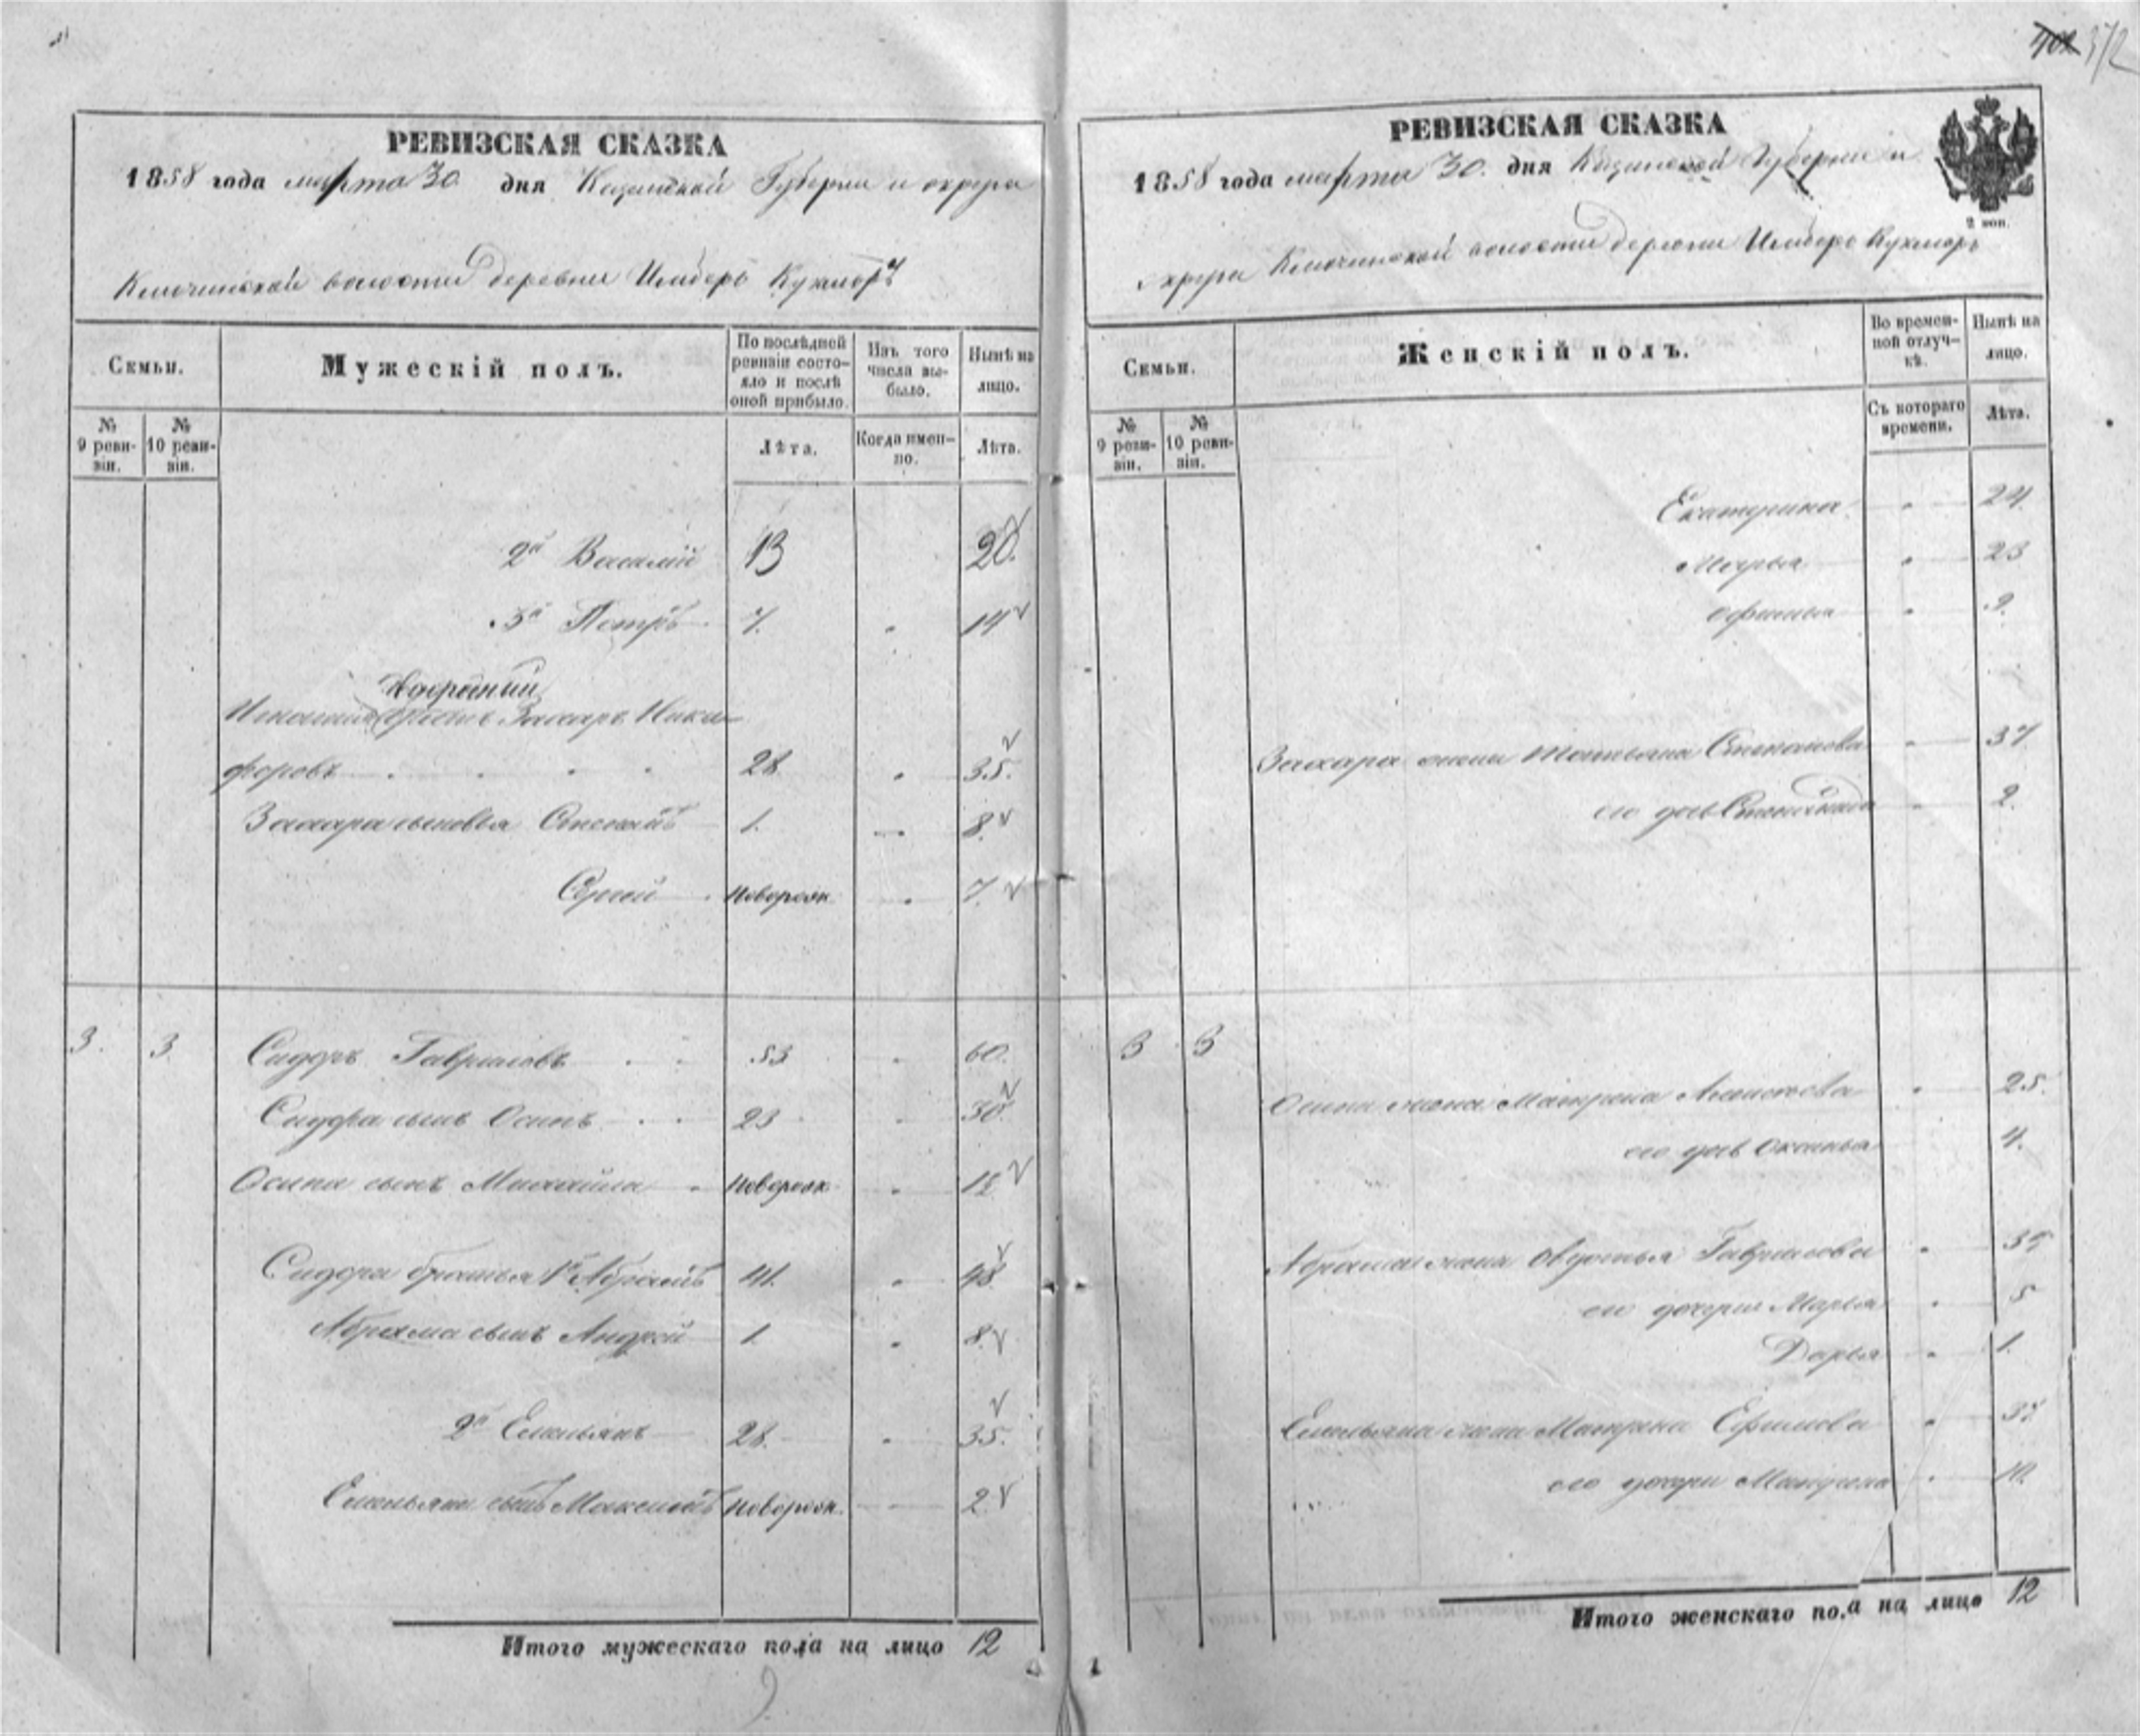 372
РЕВИЗСКАЯ СКАЗКА
1858 года марта 30 дня Казанской Губернии и округа
Ключинской волости деревни Кукморъ
Семьи.
Мужескій полъ.
По послѣдней ревизіи состояло и послѣ оной прибыло.
Изъ того числа выбыло.
Нынѣ на лицо.
№ 9 ревизіи.
№ 10 ревизіи.
Лѣта.
Когда именно.
Лѣта.
2й Василій 13 20.
3й Петръ 7. 14
Захаръ Ники-
форовъ 28 35.
Захара сыновья Степанъ 1. 8.
Сергей Новорож 7.
3. 3. Сидоръ Гавриловъ 53 60.
Сидора сынъ Осипъ 23 30.
Осипа сынъ Михайла Новорож
Сидора братья 1й Абрамъ 41. 48
Абрама сынъ Андрей 1. 8.
2й Емельянъ 28. 35.
Емельяна сынъ Максимъ Новорож. 2
Итого мужескаго пола на лицо 12
РЕВИЗСКАЯ СКАЗКА
1858 года марта 30. дня Казанской Губернии и
2 коп.
округа Ключинской волости деревни Кукморъ
Семьи.
Женскій полъ.
Во временной отлучкѣ.
Нынѣ на лицо.
№ 9 ревизіи.
№ 10 ревизіи.
Съ котораго времени.
Лѣта.
Екатерина 24.
Марья 23
Офимья 9.
Захара жена Татьяна Степанова 37
его дочь 2.
3 3
Осипа жена Матрена 25.
его дочь Оксинья 4.
Абрама жена Овдотья Гаврилова
его дочери Марья 5
Дарья 1.
Емельяна жена Матрена Ефимова
его дочери Матрена 10.
Итого женскаго пола на лицо 12